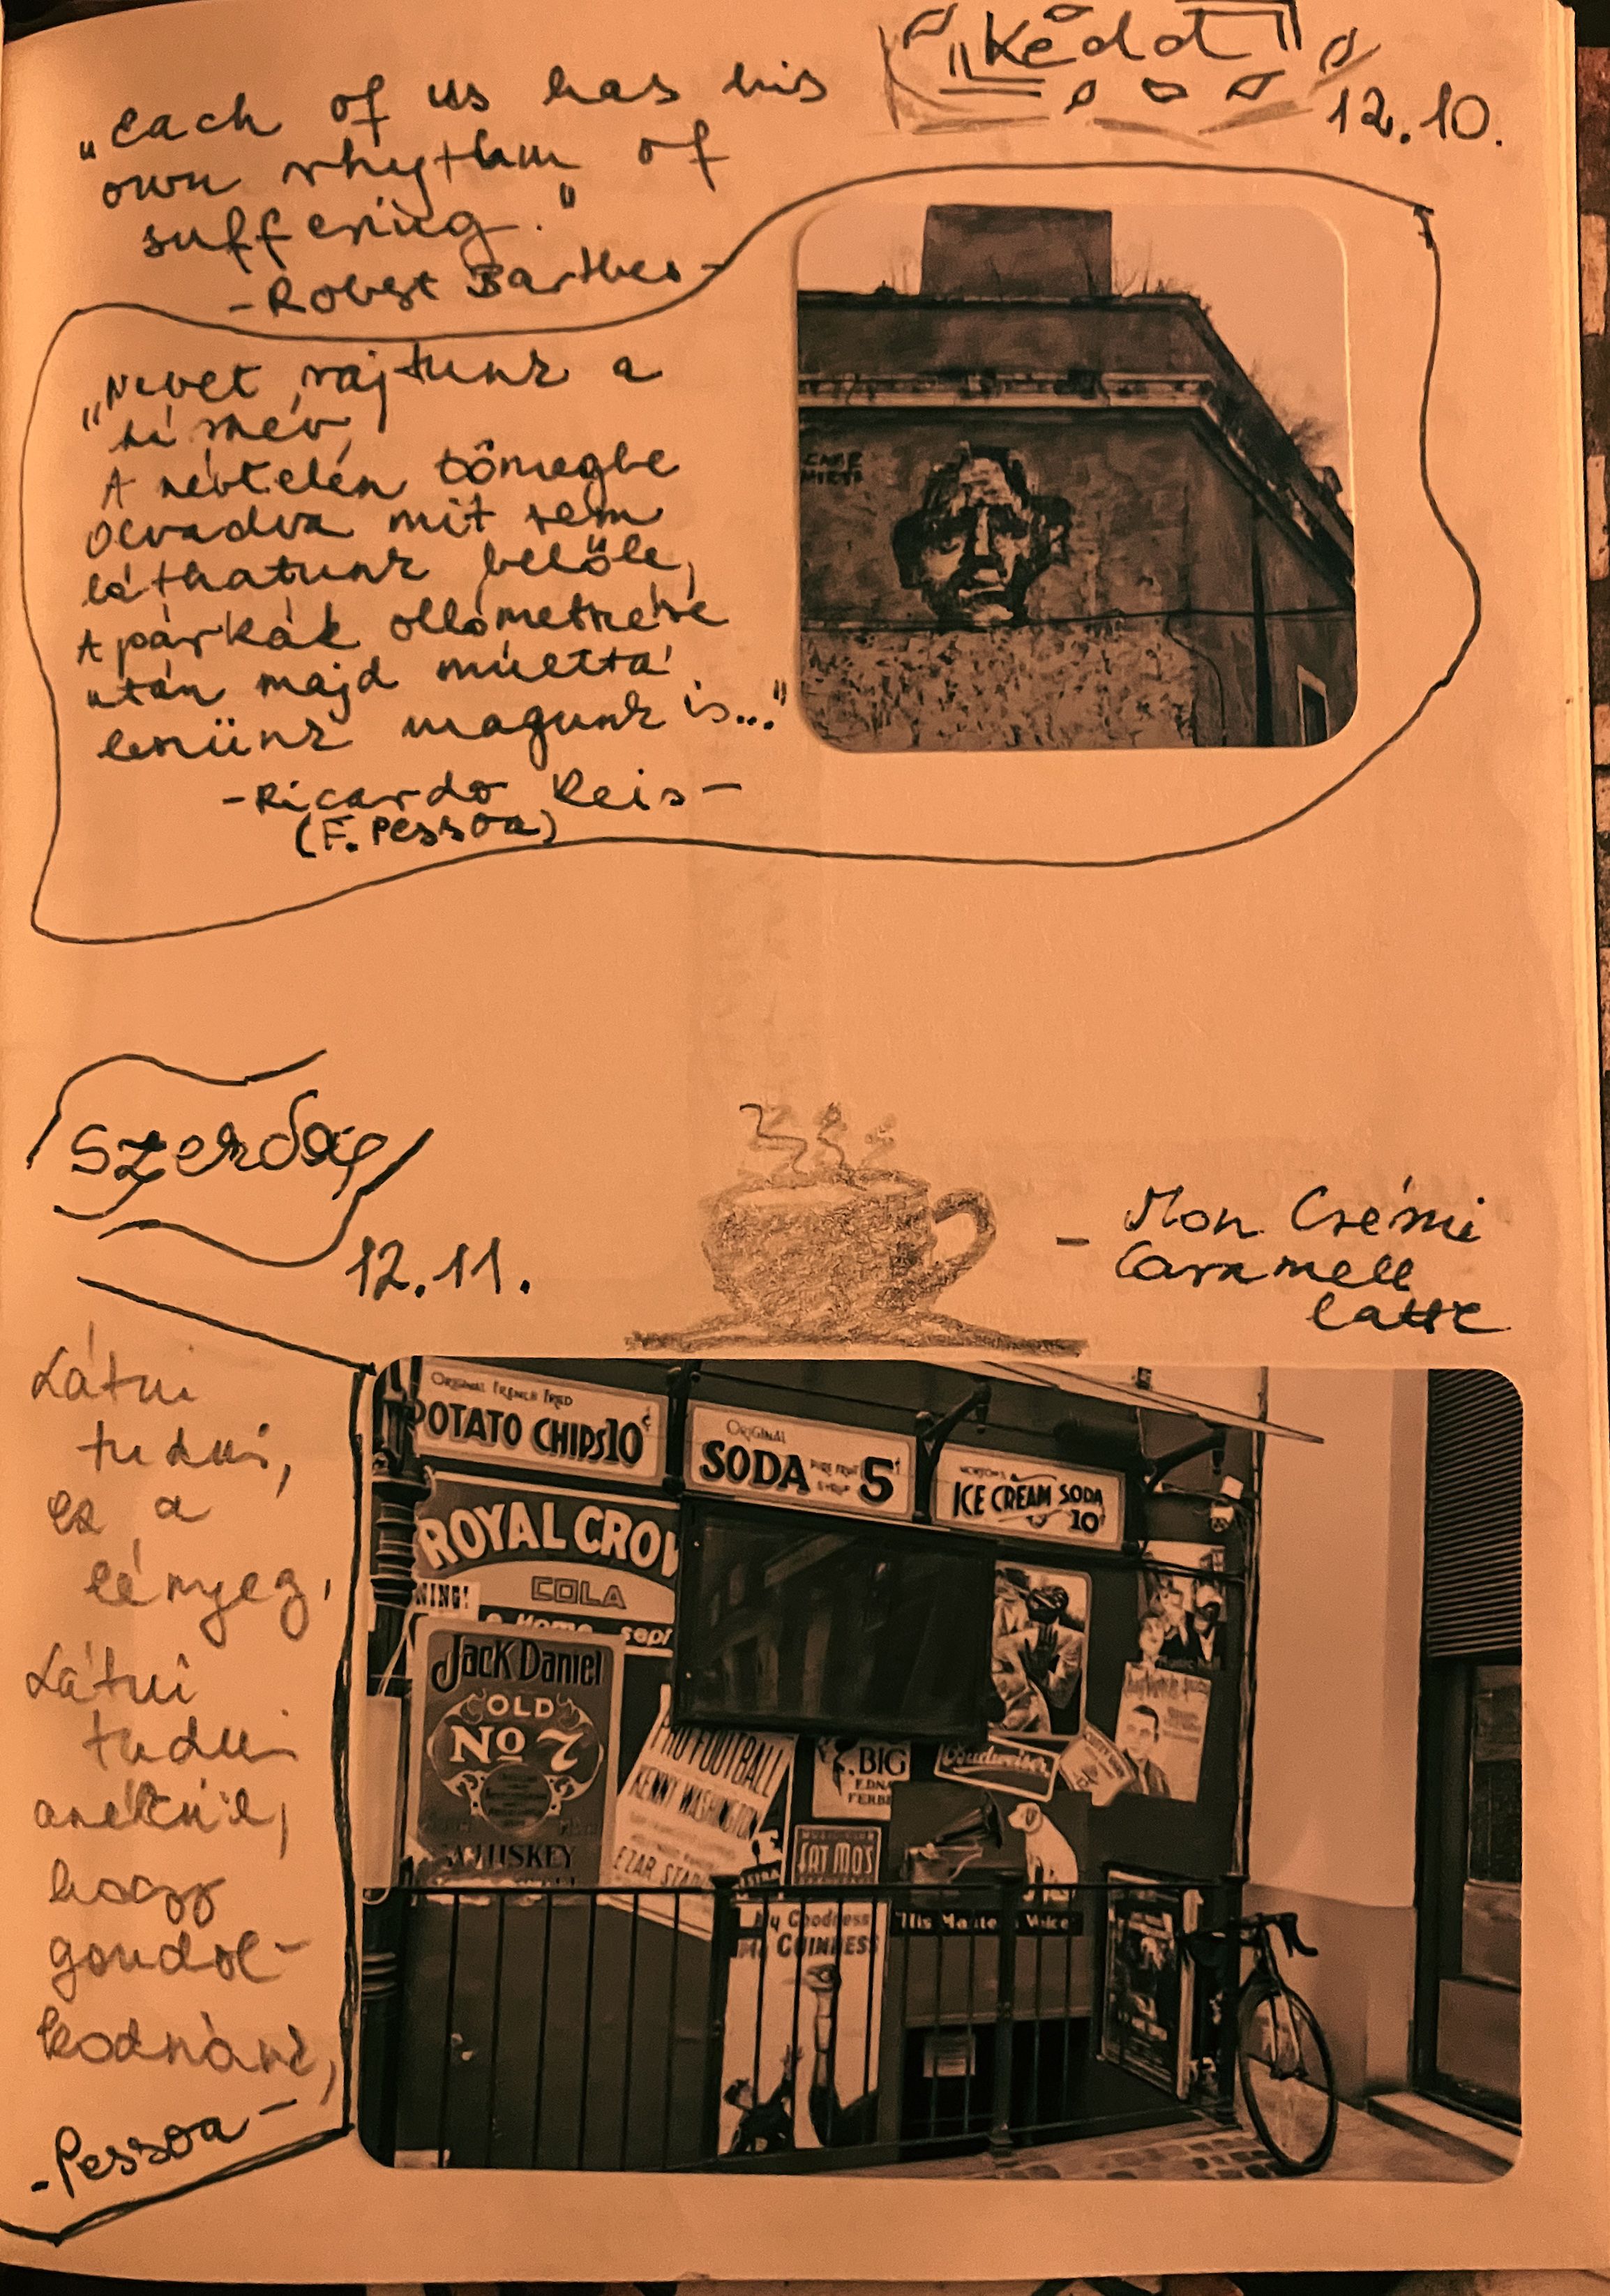 „Kedd"
12.10.
„Each of us has his
own rhythm of
suffering."
-Robert Barthes-
„Nevet rajtunk a
hírnév,
A névtelen tömegbe
olvadva mit sem
láthatunk belőle,
A párkák ollómetszése
után majd múlttá
leszünk magunk is..."
-Ricardo Reis-
(F. Pessoa)
Szerda
12.11.
- Mon Chérmi
Caramell
latte
Látni
tudni,
ez a
lényeg,
Látni
tudni
anélkül,
hogy
gondol-
kodnánk,
-Pessoa-
ORIGINAL FRENCH FRIED
POTATO CHIPS 10¢
ORIGINAL
SODA PURE FRUIT SYRUP 5¢
ICE CREAM SODA
10¢
ROYAL CROW
COLA
NING!
Jack Daniel
OLD
No 7
WHISKEY
PRO FOOTBALL
KENNY WASHINGTON
EZAR STAR
BIG
EDNA
FERBE
Budweiser
SATMO'S
"His Master's Voice"
My Goodness
My GUINNESS